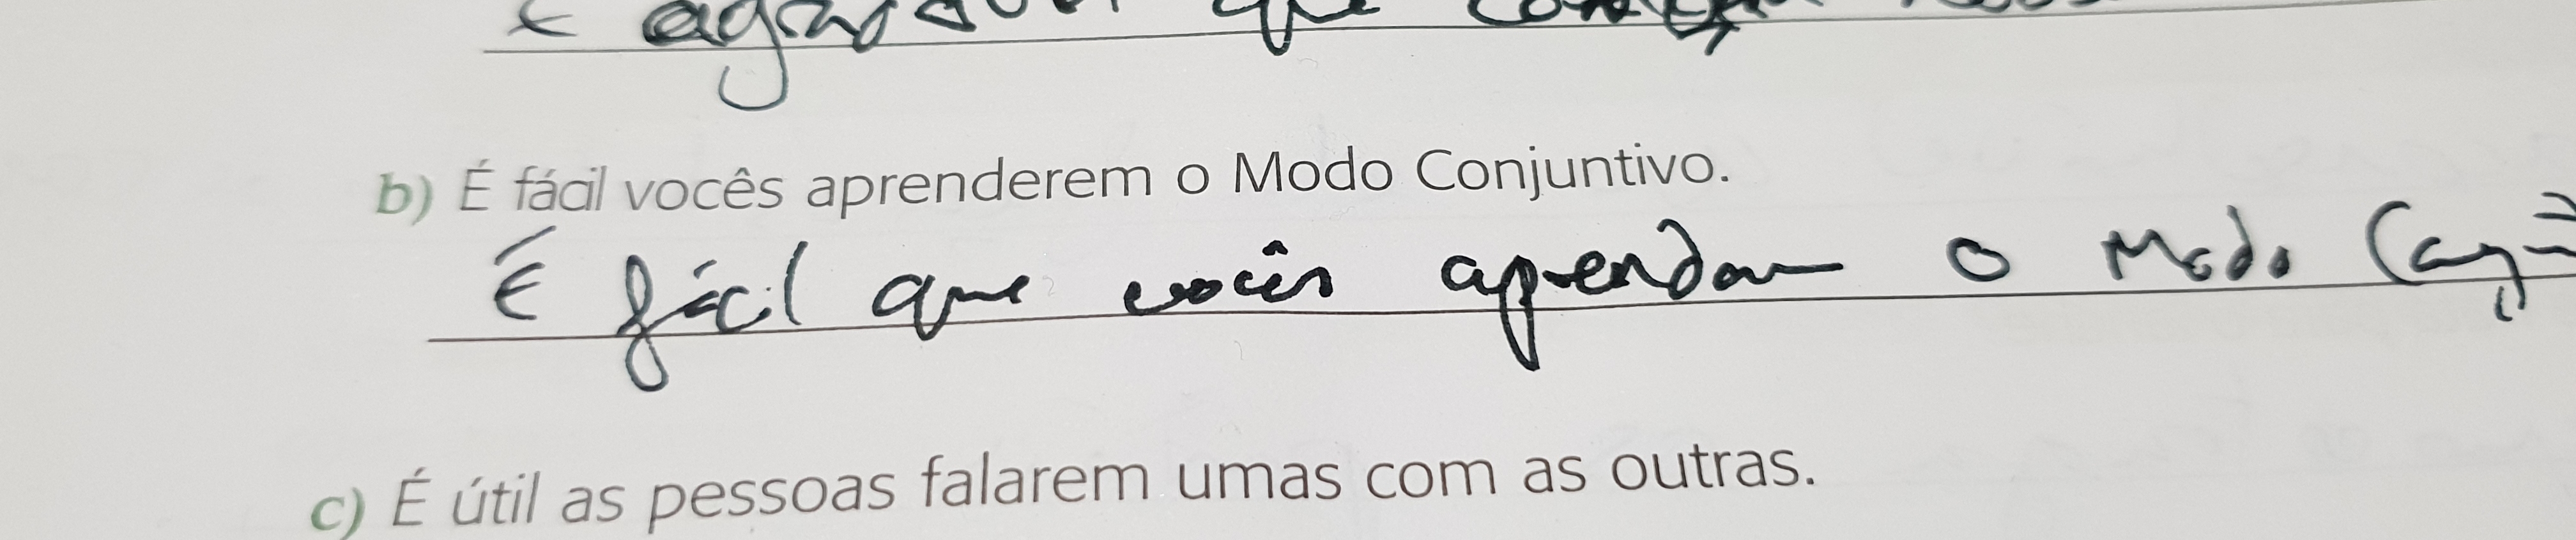 b) É fácil vocês aprenderem o Modo Conjuntivo.
É fácil que vocês aprendam o Modo
c) É útil as pessoas falarem umas com as outras.